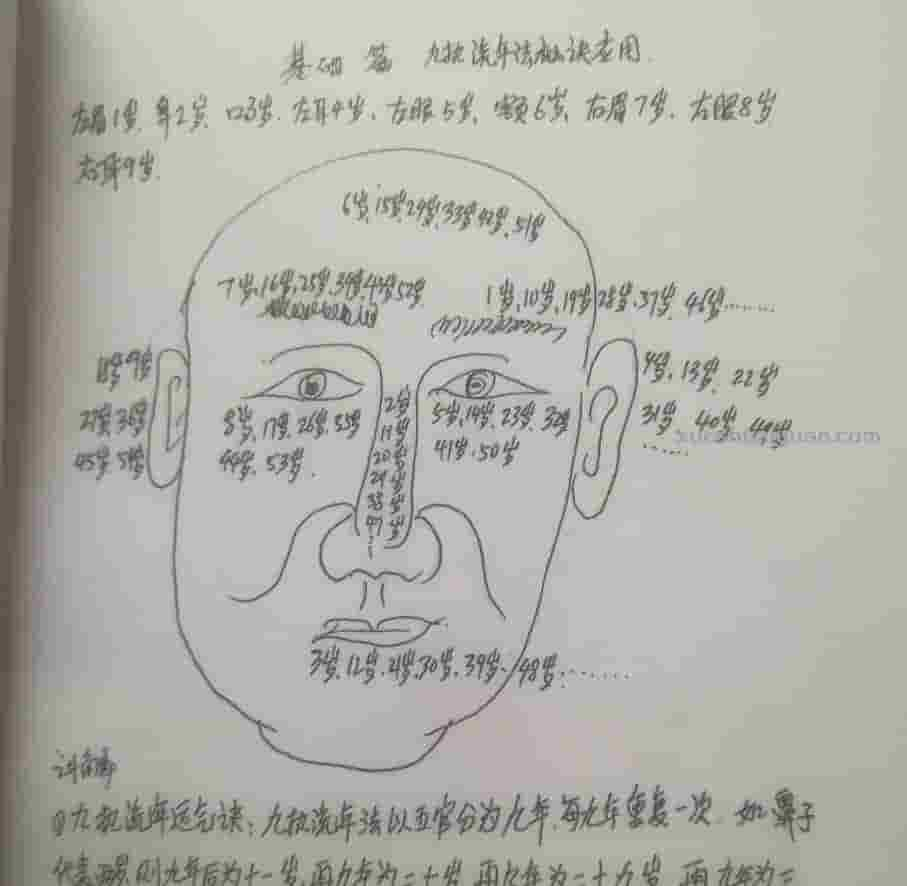 基础篇 九执流年法秘诀应用
左眉1岁、鼻2岁、口3岁、左耳4岁、左眼5岁、额6岁、右眉7岁、右眼8岁
右耳9岁.
6岁,15岁,24岁,33岁42岁、51岁
7岁,16岁,25岁,34岁,43岁52岁
1岁、10岁、19岁28岁、37岁、46岁……
18岁9岁
27岁,36岁
45岁,54岁
4岁、13岁、22岁
31岁、40岁、49岁
……
8岁、17岁、26岁、35岁
44岁、53岁.
2岁
11岁
20岁
29岁
38岁
47岁
5岁,14岁、23岁、32岁
41岁、50岁
xuesuanguan.com
3岁、12岁、21岁、30岁、39岁、48岁……
①九执流年运气诀:九执流年法以五官分为九年,每九年重复一次.如鼻子
代表两岁,则九年后为十一岁,再九年为二十岁,再九年为二十九岁,再九年为三